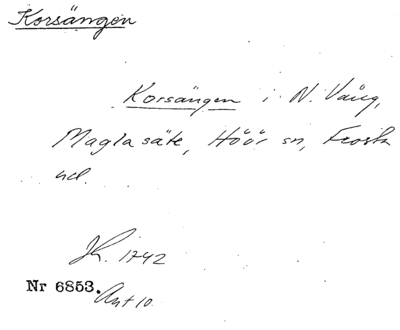 Korsängen
Korsängen i N. Vång,
Maglasäte, Höör sn, Frosta
hd.
K. 1742
Nr 6853.
Akt 10